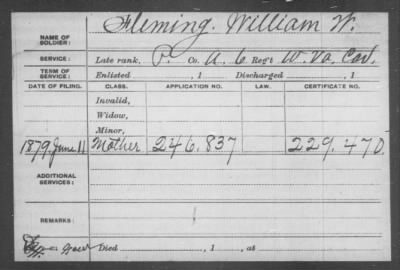 Fleming. William W.
NAME OF SOLDIER:
SERVICE: Late rank, P. Co. A. 6 Reg't W. Va. Cav.
TERM OF SERVICE: Enlisted , 1 Discharged , 1
DATE OF FILING. CLASS. APPLICATION NO. LAW. CERTIFICATE NO.
Invalid,
Widow,
Minor,
1879 June 11 Mother 246.837 229.470
ADDITIONAL SERVICES:
REMARKS:
Died , 1 , at